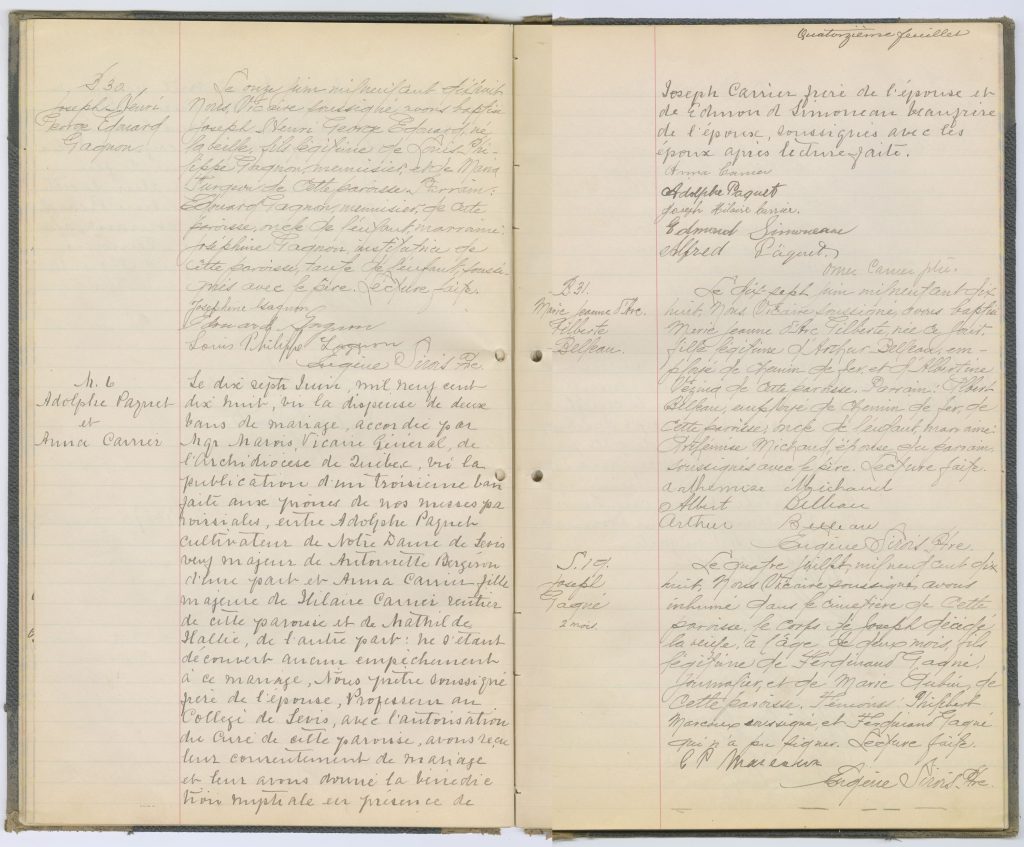 B 30.
Joseph Henri
George Edouard
Gagnon.
Le onze juin mil neuf cent dix huit
Nous Vicaire soussigné, avons baptisé
Joseph Henri George Edouard, né
la veille, fils légitime de Louis Phi-
lippe Gagnon, menuisier, et de Maria
Turgeon de cette paroisse. Parrain:
Edouard Gagnon, menuisier, de cette
paroisse, oncle de l'enfant, marraine:
Joséphine Gagnon, institutrice de
cette paroisse, tante de l'enfant, soussi-
gnés avec le père. Lecture faite.
Joséphine Gagnon
Edouard Gagnon
Louis Philippe Gagnon
Eugène Sirois Ptre.
M. 6
Adolphe Paquet
et
Anna Carrier
Le dix sept Juin, mil neuf cent
dix huit, vu la dispense de deux
bans de mariage, accordée par
Mgr Marois, Vicaire Général, de
l'Archidiocèse de Québec, vu la
publication d'un troisième ban
faite aux prônes de nos messes pa
roissiales, entre Adolphe Paquet
cultivateur de Notre Dame de Levis
veuf majeur de Antoinette Bergeron
d'une part et Anna Carrier fille
majeure de Hilaire Carrier rentier
de cette paroisse et de Mathilde
Hallée, de l'autre part: ne s'étant
découvert aucun empêchement
à ce mariage, Nous prêtre soussigné
frère de l'épouse, Professeur au
Collège de Levis, avec l'autorisation
du Curé de cette paroisse, avons reçu
leur consentement de mariage
et leur avons donné la bénédic
tion nuptiale en présence de
Quatorzième feuillet
Joseph Carrier frère de l'épouse et
de Edmond Simoneau beaufrère
de l'époux, soussignés avec les
époux après lecture faite.
Anna Carrier
Adolphe Paquet
Joseph Hilaire Carrier.
Edmund Simoneau
Alfred Paquet
Omer Carrier ptre.
B 31.
Marie Jeanne d'Arc
Gilberte
Belleau.
Le dix-sept juin mil neuf cent dix
huit, Nous Vicaire soussigné, avons baptisé
Marie Jeanne d'Arc Gilberte, née ce jour,
fille légitime d'Arthur Belleau, em-
ployé de chemin de fer, et d'Albertine
de cette paroisse. Parrain: Albert
Belleau, employé de chemin de fer, de
cette paroisse, oncle de l'enfant, marraine:
Arthémise Michaud, épouse du parrain
soussignés avec le père. Lecture faite.
Arthemise Michaud
Albert Belleau
Arthur Belleau
Eugène Sirois Ptre.
S. 19.
Joseph
Gagné
2 mois.
Le quatre juillet, mil neuf cent dix
huit, Nous Vicaire soussigné avons
inhumé dans le cimetière de cette
paroisse, le corps de Joseph décédé
la veille, à l'âge de deux mois, fils
légitime de Ferdinand Gagné,
journalier, et de Marie Aubin, de
cette paroisse. Témoins: Philibert
Marceau soussigné, et Ferdinand Gagné
qui n'a pu signer. Lecture faite.
C P Marceau
Eugène Sirois Ptre.